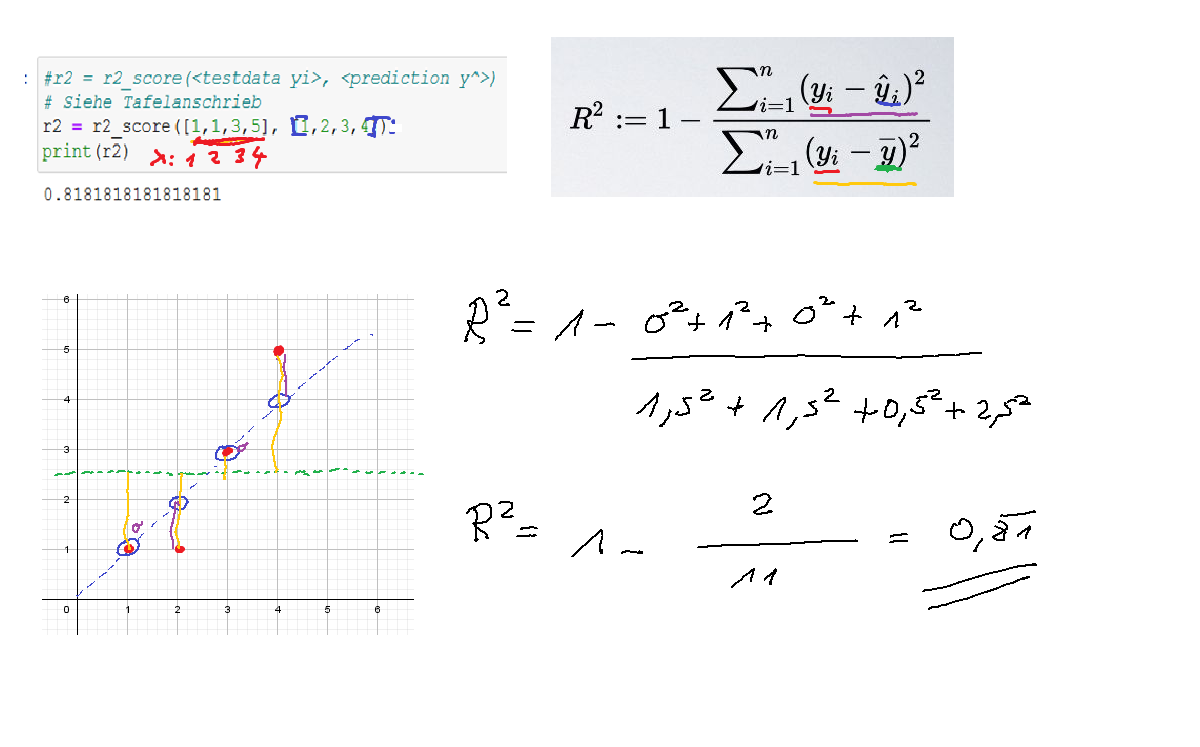 : #r2 = r2_score(<testdata yi>, <prediction y^>)
# Siehe Tafelanschrieb
r2 = r2_score([1,1,3,5], [1,2,3,4]):
print(r2)
x: 1 2 3 4
0.8181818181818181
R² := 1 − ∑ⁿᵢ₌₁ (yᵢ − ŷᵢ)² / ∑ⁿᵢ₌₁ (yᵢ − y̅)²
6
5
4
3
2
1
0 1 2 3 4 5 6
0
0
R² = 1 − 0² + 1² + 0² + 1² / 1,5² + 1,5² + 0,5² + 2,5²
R² = 1 − 2 / 11 = 0,8̅1̅